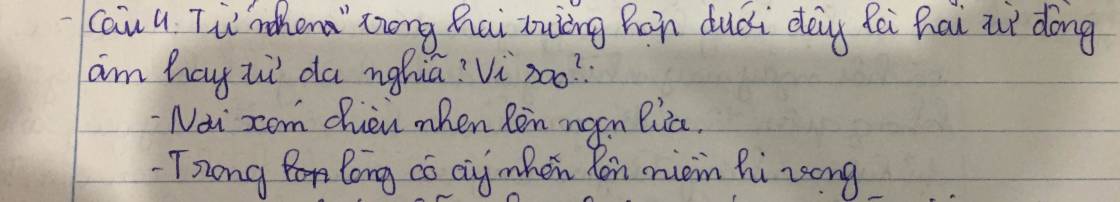 - Câu 4. Từ "nhen" trong hai trường hợp dưới đây là hai từ đồng
âm hay từ đa nghĩa? Vì sao?:
- Nơi xóm chiều nhen lên ngọn lửa.
- Trong lòng cô ấy nhên lên niềm hi vọng